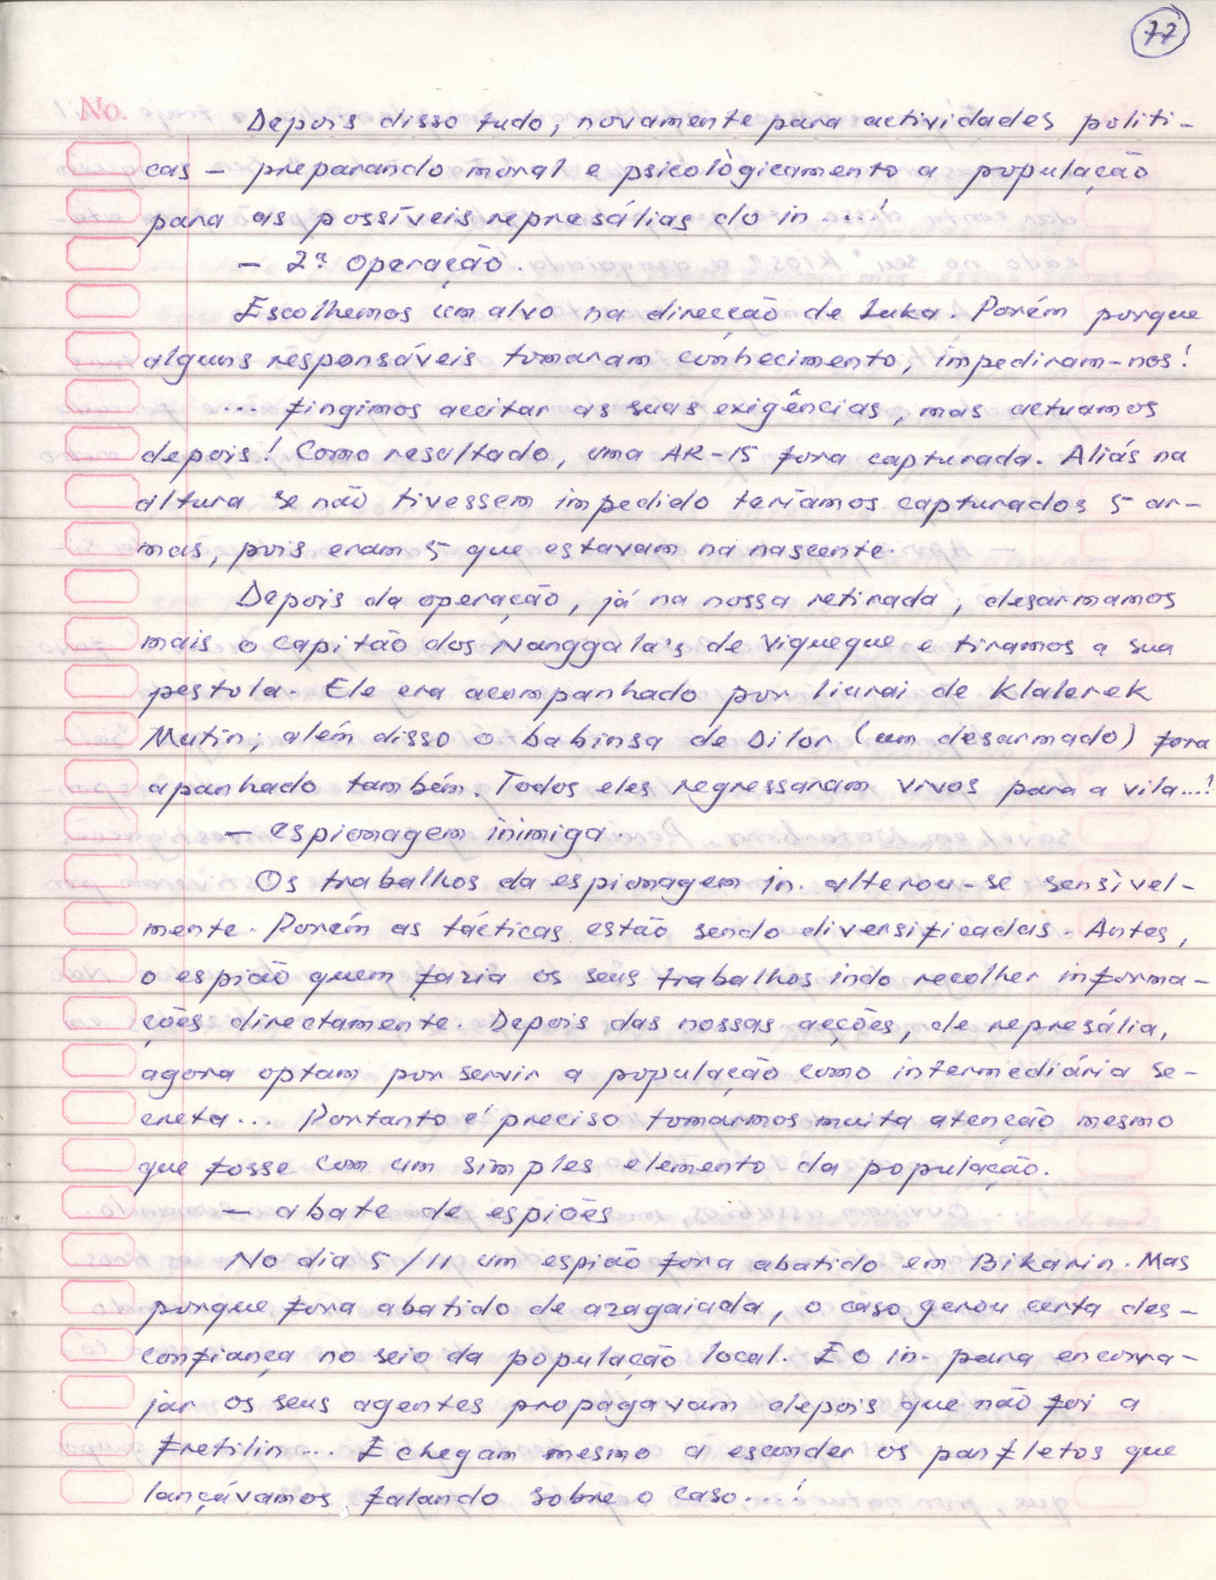 77
No.
Depois disso tudo, novamente para actividades politi-
cas - preparando moral e psicològicamente a população
para as possíveis represálias do in...!
- 2ª operação.
Escolhemos um alvo na direcção de Luka. Porém porque
alguns responsáveis tomaram conhecimento, impediram-nos!
... fingimos aceitar as suas exigências, mas actuamos
depois! Como resultado, uma AR-15 fora capturada. Aliás na
altura se não tivessem impedido teríamos capturados 5 ar-
mas, pois eram 5 que estavam na nascente.
Depois da operação, já na nossa retirada, desarmamos
mais o capitão dos Nanggala's de Viqueque e tiramos a sua
pestola. Ele era acompanhado por liurai de Klalerek
Mutin; além disso o babinsa de Dilor (um desarmado) fora
apanhado também. Todos eles regressaram vivos para a vila...!
- espionagem inimiga.
Os trabalhos da espionagem in. alterou-se sensìvel-
mente. Porém as tácticas estão sendo diversificadas. Antes,
o espião quem fazia os seus trabalhos indo recolher informa-
ções directamente. Depois das nossas acções, de represália,
agora optam por servir a população como intermediária se-
creta... Portanto é preciso tomarmos muita atenção mesmo
que fosse com um simples elemento da população.
- abate de espiões
No dia 5/11 um espião fora abatido em Bikarin. Mas
porque fora abatido de azagaiada, o caso gerou certa des-
confiança no seio da população local. E o in. para encorra-
jar os seus agentes propagavam depois que não foi a
Fretilin... E chegam mesmo a esconder os panfletos que
lançávamos falando sobre o caso...!